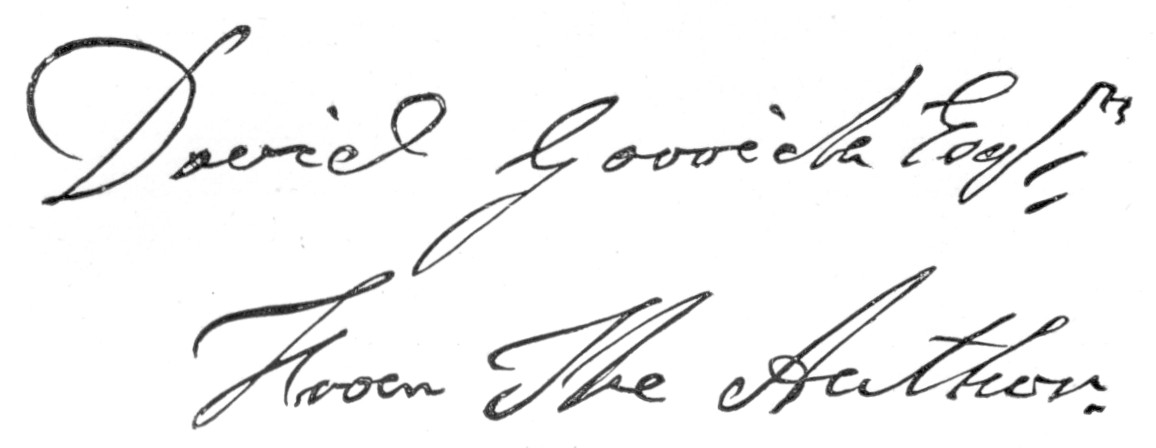 David Garrick Esqr
From The Author.